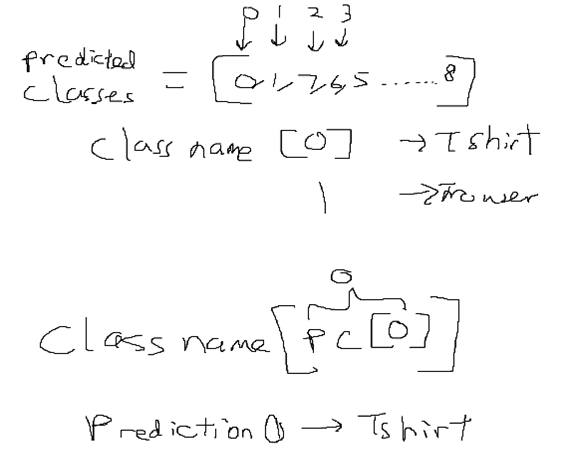 0 1 2 3
predicted classes = [0, 1, 7, 6, 5 ...... 8]
class name [0] → Tshirt
1 → Trouser
0
Class name [PC[0]]
Prediction 0 → Tshirt